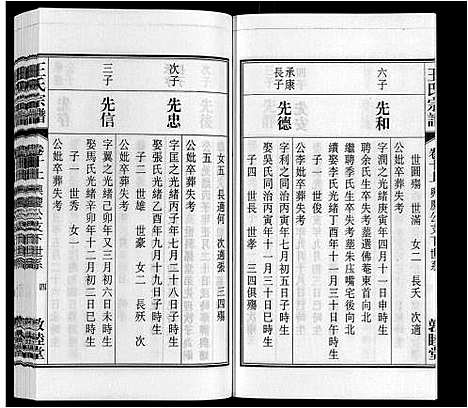 王氏宗譜
世圓殤 世滿 女二 長夭 次適
六子
先和
字之潤光緒庚寅年四月十一日申時生
公妣卒葬失考
配余氏生卒失考墓選佛菴東首向北
繼聘李氏生卒失考墓朱庄嘴宅後向北
續娶李氏光緒丁酉年十一月三十日午時生
子一 世俊
公李妣卒葬失考
承康長子
先德
字利之同治丙寅年七月初五日子時生
娶 氏同治丙寅年十一月初二日寅時生
子四 世長 世孝 三四俱殤
女五 長適何 次適張 三四殤
五
公妣卒葬失考
次子
先忠
字匡之光緒丙子年七月二十八日子時生
娶張氏光緒乙酉年九月十九日子時生
子二 世雄 世豪 女二 長殀 次
公妣卒葬失考
三子
先信
字翼之光緒辛巳年又三月初六日未時生
娶馬氏光緒辛卯年十二月初二日巳時生
子一 世秀 女一
公妣卒葬失考
王氏宗譜
四
敦睦堂